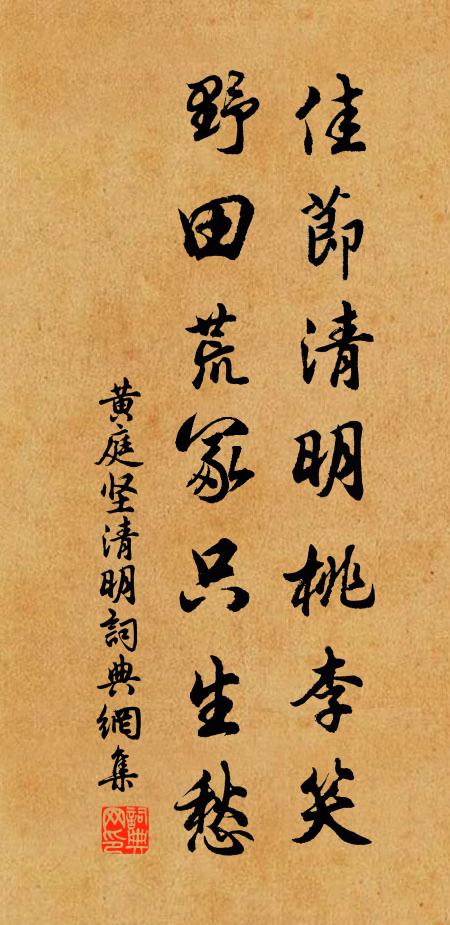 佳節清明桃李笑
野田荒冢只生愁
黄庭坚清明詞典網集
詞典网印